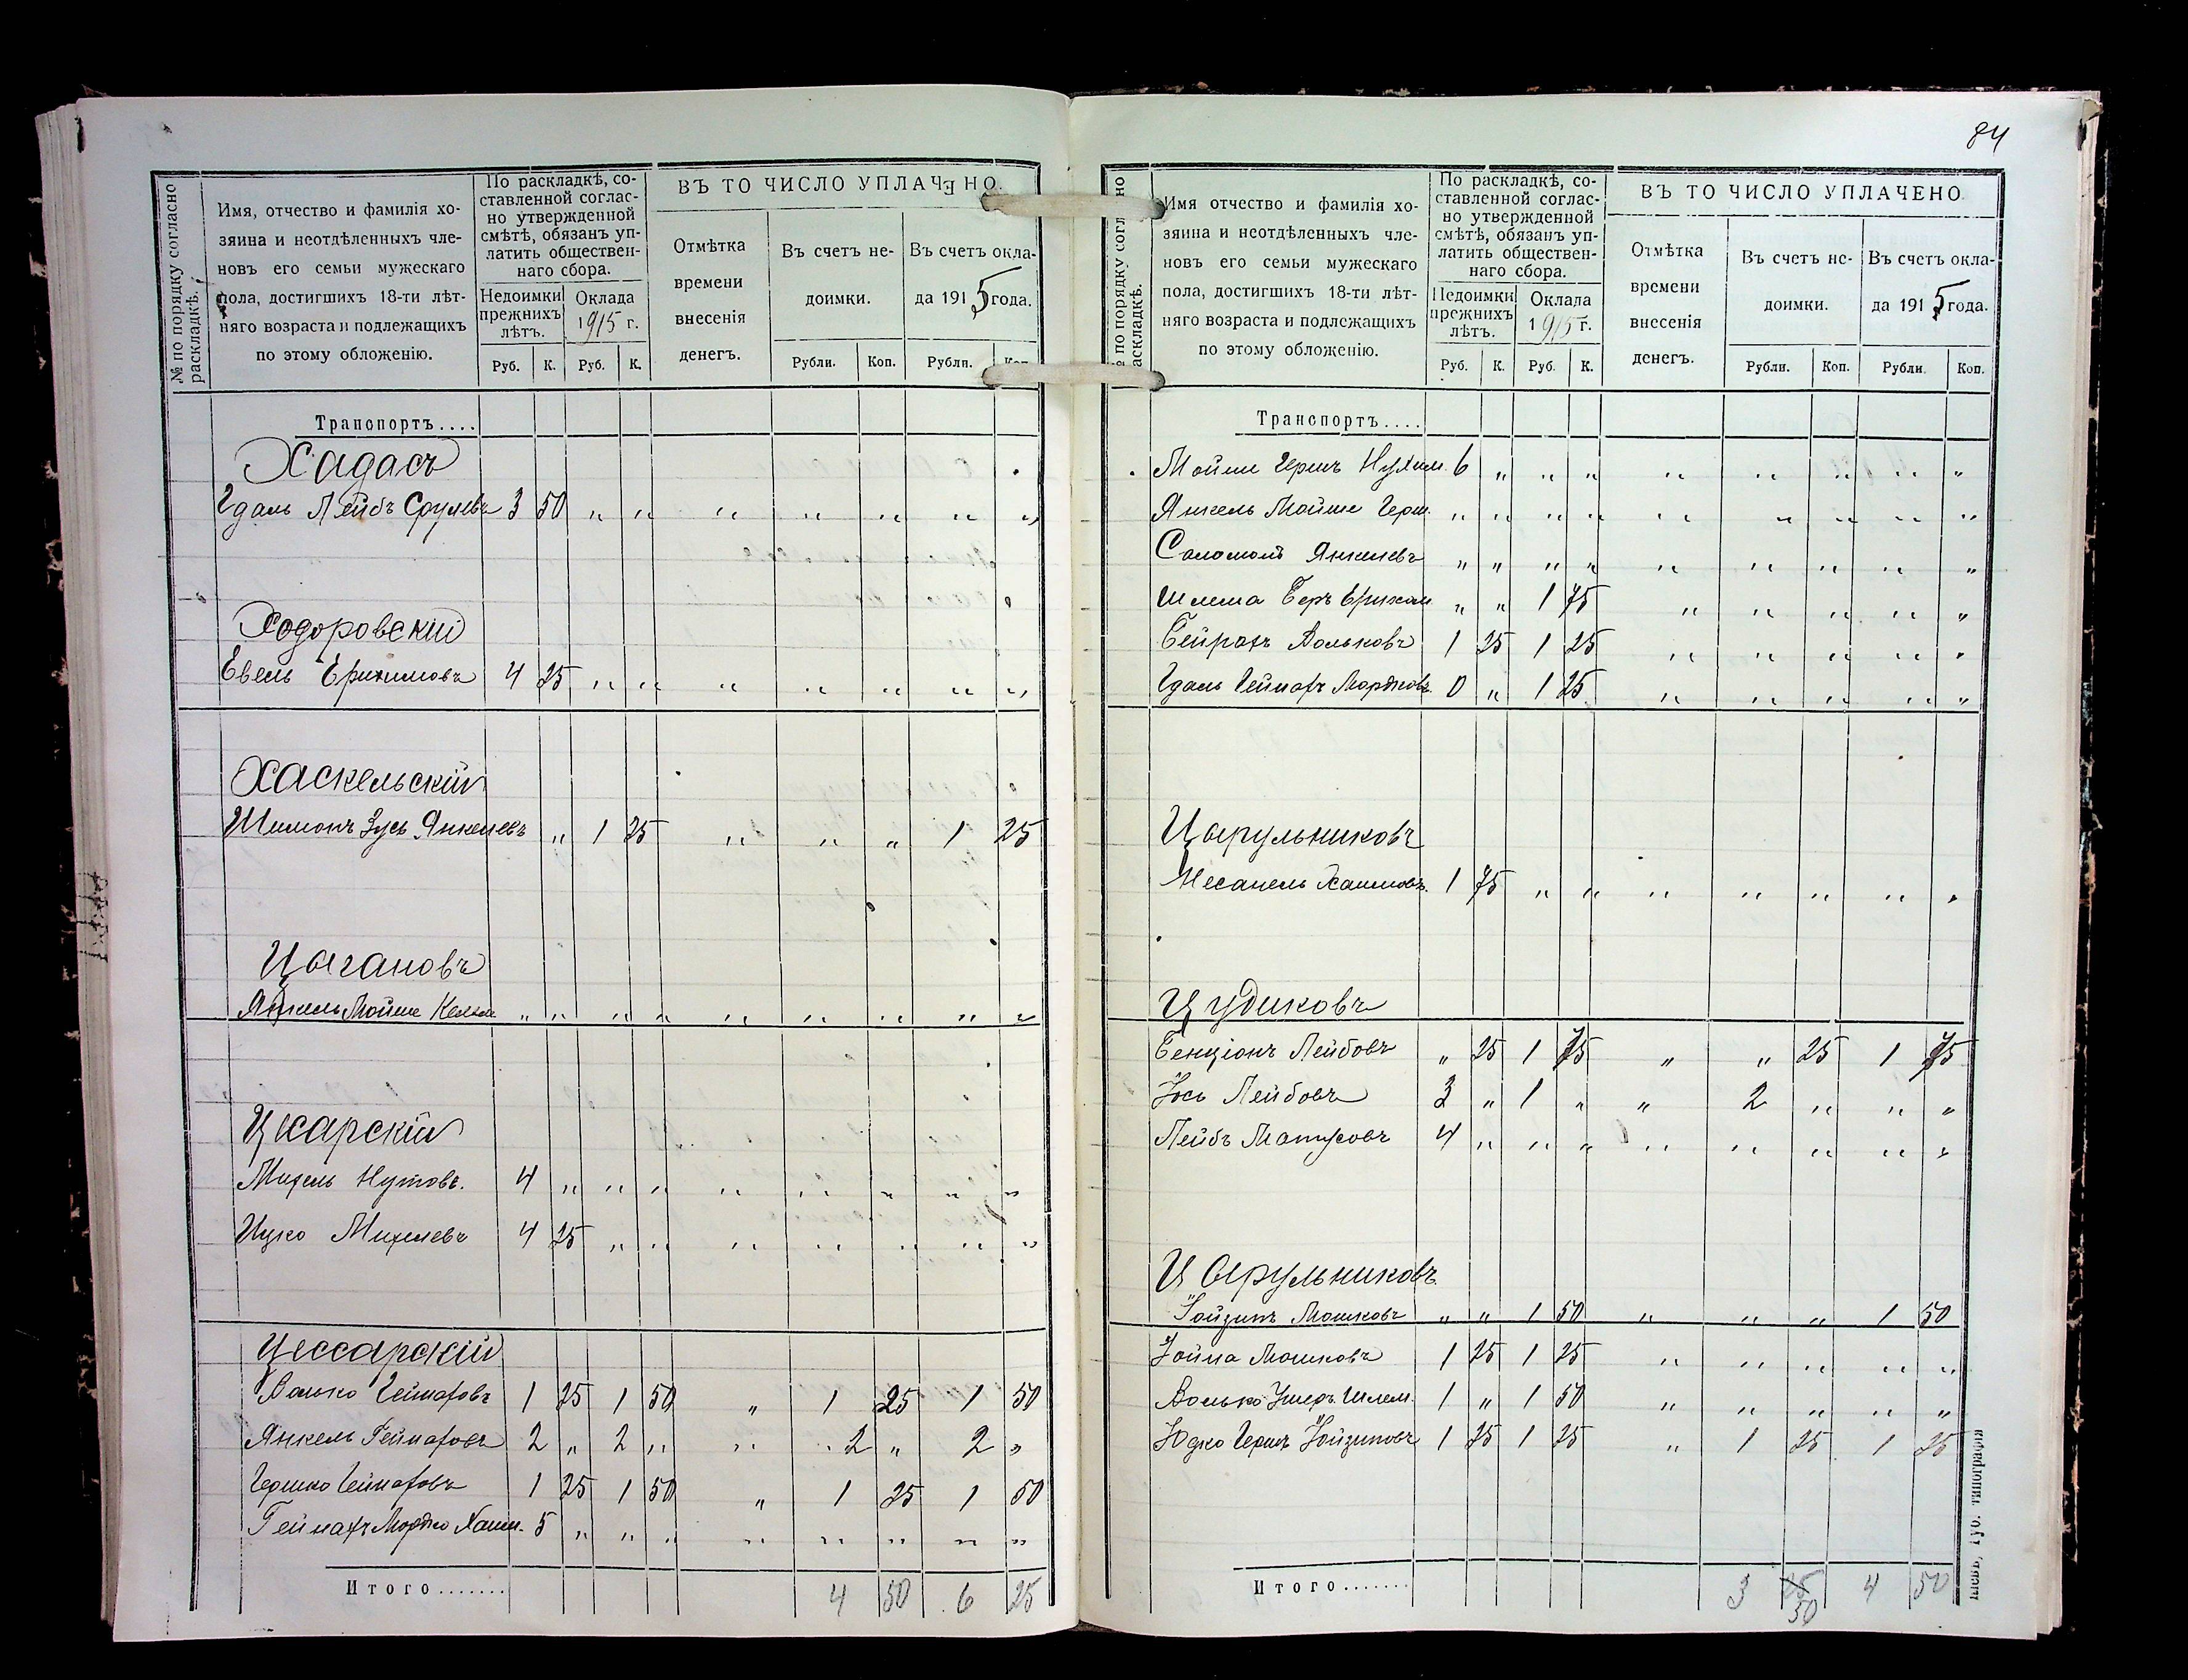 № по порядку согласно раскладкѣ.
Имя, отчество и фамилія хо-
зяина и неотдѣленныхъ чле-
новъ его семьи мужескаго
пола, достигшихъ 18-ти лѣт-
няго возраста и подлежащихъ
по этому обложенію.
По раскладкѣ, со-
ставленной соглас-
но утвержденной
смѣтѣ, обязанъ уп-
латить обществен-
наго сбора.
Недоимки прежнихъ лѣтъ.
Оклада 1915 г.
Руб. К. Руб. К.
ВЪ ТО ЧИСЛО УПЛАЧЕНО.
Отмѣтка времени внесенія денегъ.
Въ счетъ не-доимки.
Въ счетъ окла-да 1915 года.
Рубли. Коп. Рубли.
Транспортъ....
Хадасъ
Гдаль Лейбъ Срулевъ 3 50 " " " " " " "
Ходоровскій
Евель Ерихимовъ 4 25 " " " " " " "
Хаскельскій
Шимонъ Зусь Янкелевъ " 1 25 " " " 1 25
Цыгановъ
Янкель Мойше " " " " " " " " "
Цкарскій
Михель Нутовъ. 4 " " " " " " " "
Ицко Михелевъ 4 25 " " " " " " "
Цессарскій
Волько Геймаховъ 1 25 1 50 " 1 25 1 50
Янкель Геймаховъ 2 " 2 " " 2 " 2 "
Гершко Геймаховъ 1 25 1 50 " 1 25 1 50
Геймахъ Мордко Хаим. 5 " " " " " " " "
Итого....... 4 50 6 25
84
№ по порядку согласно раскладкѣ.
Имя отчество и фамилія хо-
зяина и неотдѣленныхъ чле-
новъ его семьи мужескаго
пола, достигшихъ 18-ти лѣт-
няго возраста и подлежащихъ
по этому обложенію.
По раскладкѣ, со-
ставленной соглас-
но утвержденной
смѣтѣ, обязанъ уп-
латить обществен-
наго сбора.
Недоимки прежнихъ лѣтъ.
Оклада 1915 г.
Руб. К. Руб. К.
ВЪ ТО ЧИСЛО УПЛАЧЕНО.
Отмѣтка времени внесенія денегъ.
Въ счетъ не-доимки.
Въ счетъ окла-да 1915 года.
Рубли. Коп. Рубли. Коп.
Транспортъ....
Мойше Гершъ Нухим. 6 " " " " " " " "
Янкель Мойше Герш. " " " " " " " " "
Соломонъ Янкелевъ " " " " " " " " "
Шлема Беръ Ерихим " " 1 75 " " " " "
Бейрахъ Вольковъ 1 25 1 25 " " " " "
Гдаль Геймахъ Мордков. 0 " 1 25 " " " " "
Цырульниковъ
Несанель Хаимовъ. 1 75 " " " " " " "
Цудиковъ
Бенціонъ Лейбовъ " 25 1 75 " " 25 1 75
Іось Лейбовъ 3 " 1 " " 2 " " "
Лейбъ Матусовъ 4 " " " " " " " "
Цырульниковъ.
Іойзипъ Мошковъ " " 1 50 " " " 1 50
Іойна Мошковъ 1 25 1 25 " " " " "
Волько Ушеръ Шлем. 1 " 1 50 " " " " "
Юдко Гершъ Іойзиповъ 1 25 1 25 " 1 25 1 25
Итого....... 3 25 50 4 50
Губ. типографія